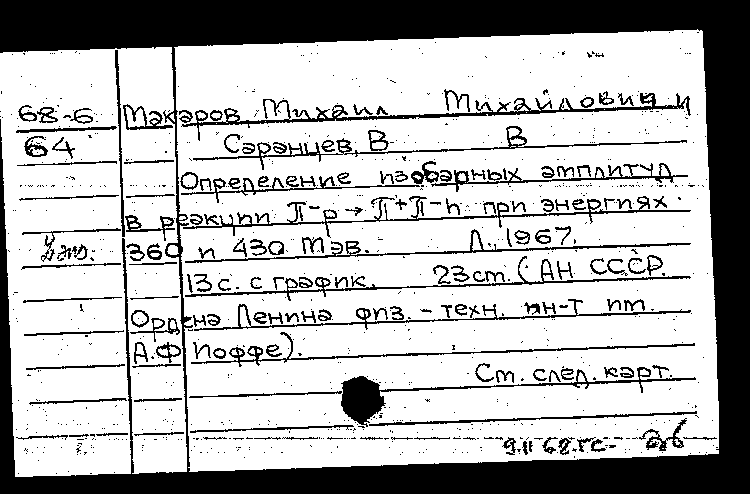 68-6 Макаров, Михаил Михайлович и
64 Саранцев, В В
Определение изобарных амплитуд
в реакции π⁻p → π⁺π⁻n при энергиях
2 экз. 360 и 430 Мэв. Л., 1967.
13 с. с график. 23 см. (АН СССР.
Ордена Ленина физ. - техн. ин-т им.
А.Ф Иоффе).
См. след. карт.
9.II 68. ГС-